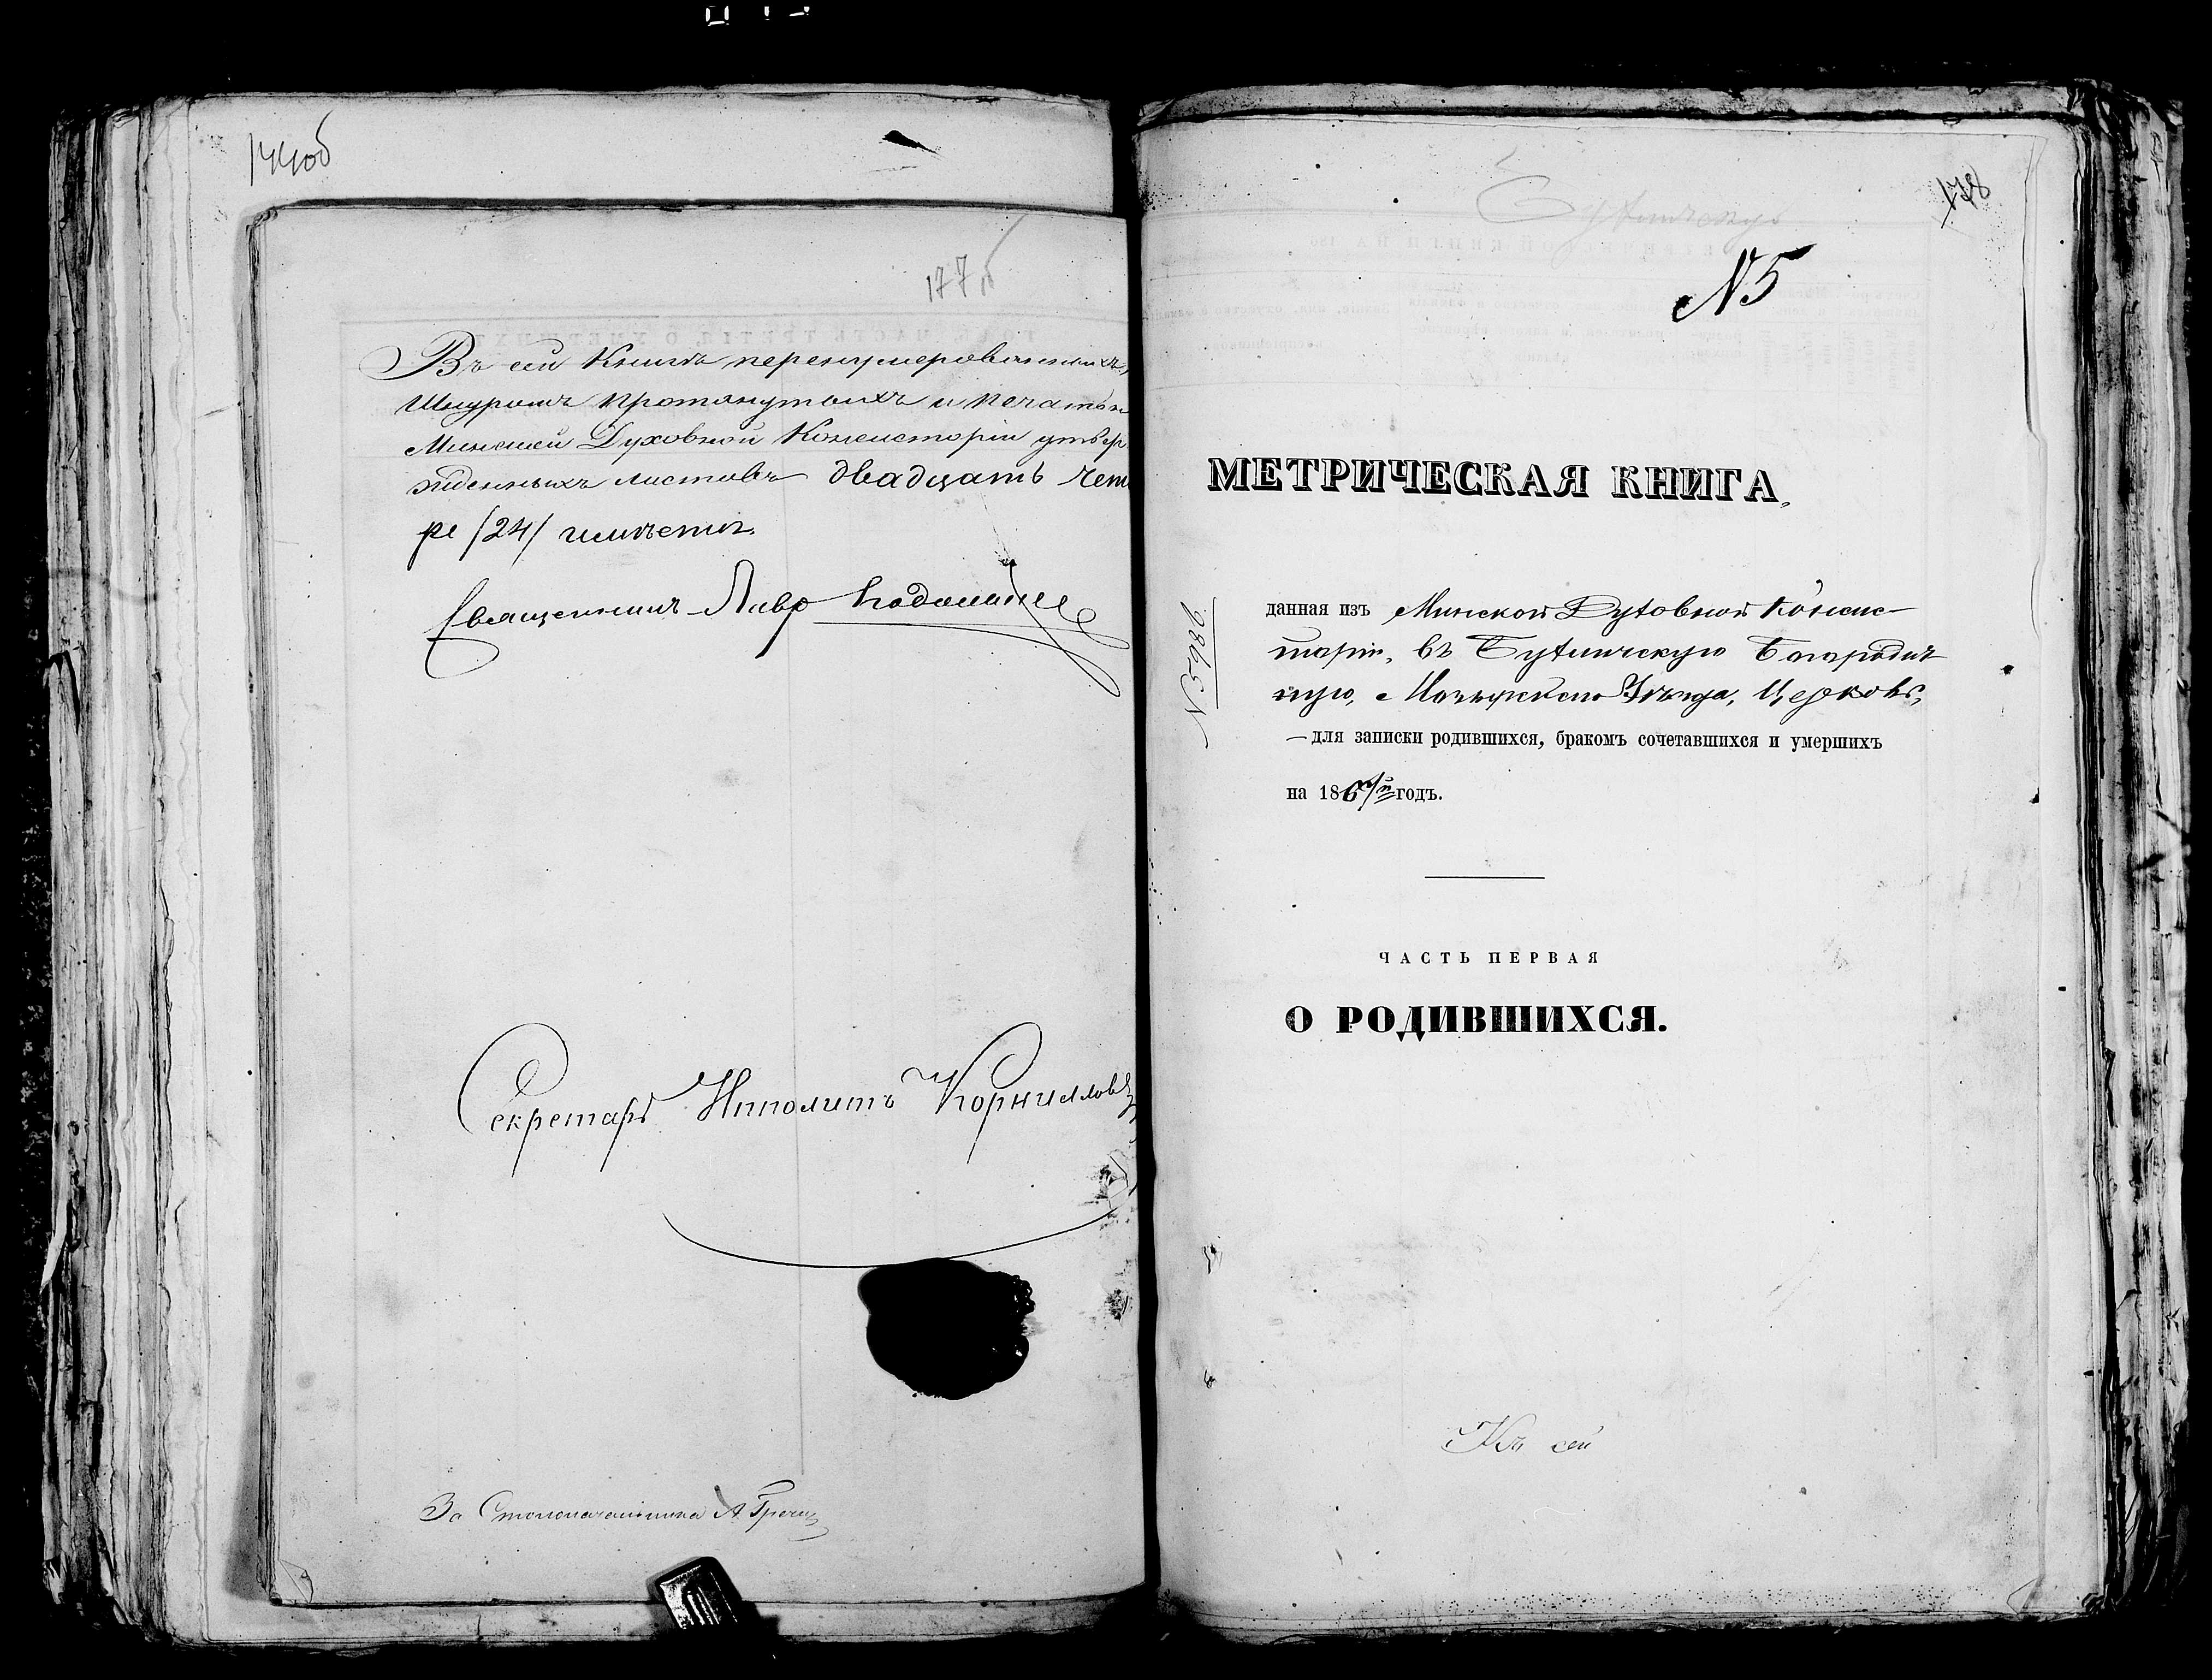 144об
177об
Въ сей Книгѣ перенумерованныхъ,
Шнуромъ протянутыхъ и печатью
Минской Духовной Консисторіи утвер
жденныхъ листовъ двадцать четы
ре /24/ имѣетъ.
Священникъ Лавр
Секретарь Ипполитъ Корнилов
За Столоначальника А. Гречи
178
№5
МЕТРИЧЕСКАЯ КНИГА,
№ 5986.
данная изъ Минской Духовной Консис-
торіи, въ Богородич
ную, Мозырскаго Уѣзда, Церковь,
— для записки родившихся, бракомъ сочетавшихся и умершихъ
на 186 годъ.
ЧАСТЬ ПЕРВАЯ
О РОДИВШИХСЯ.
Къ сей